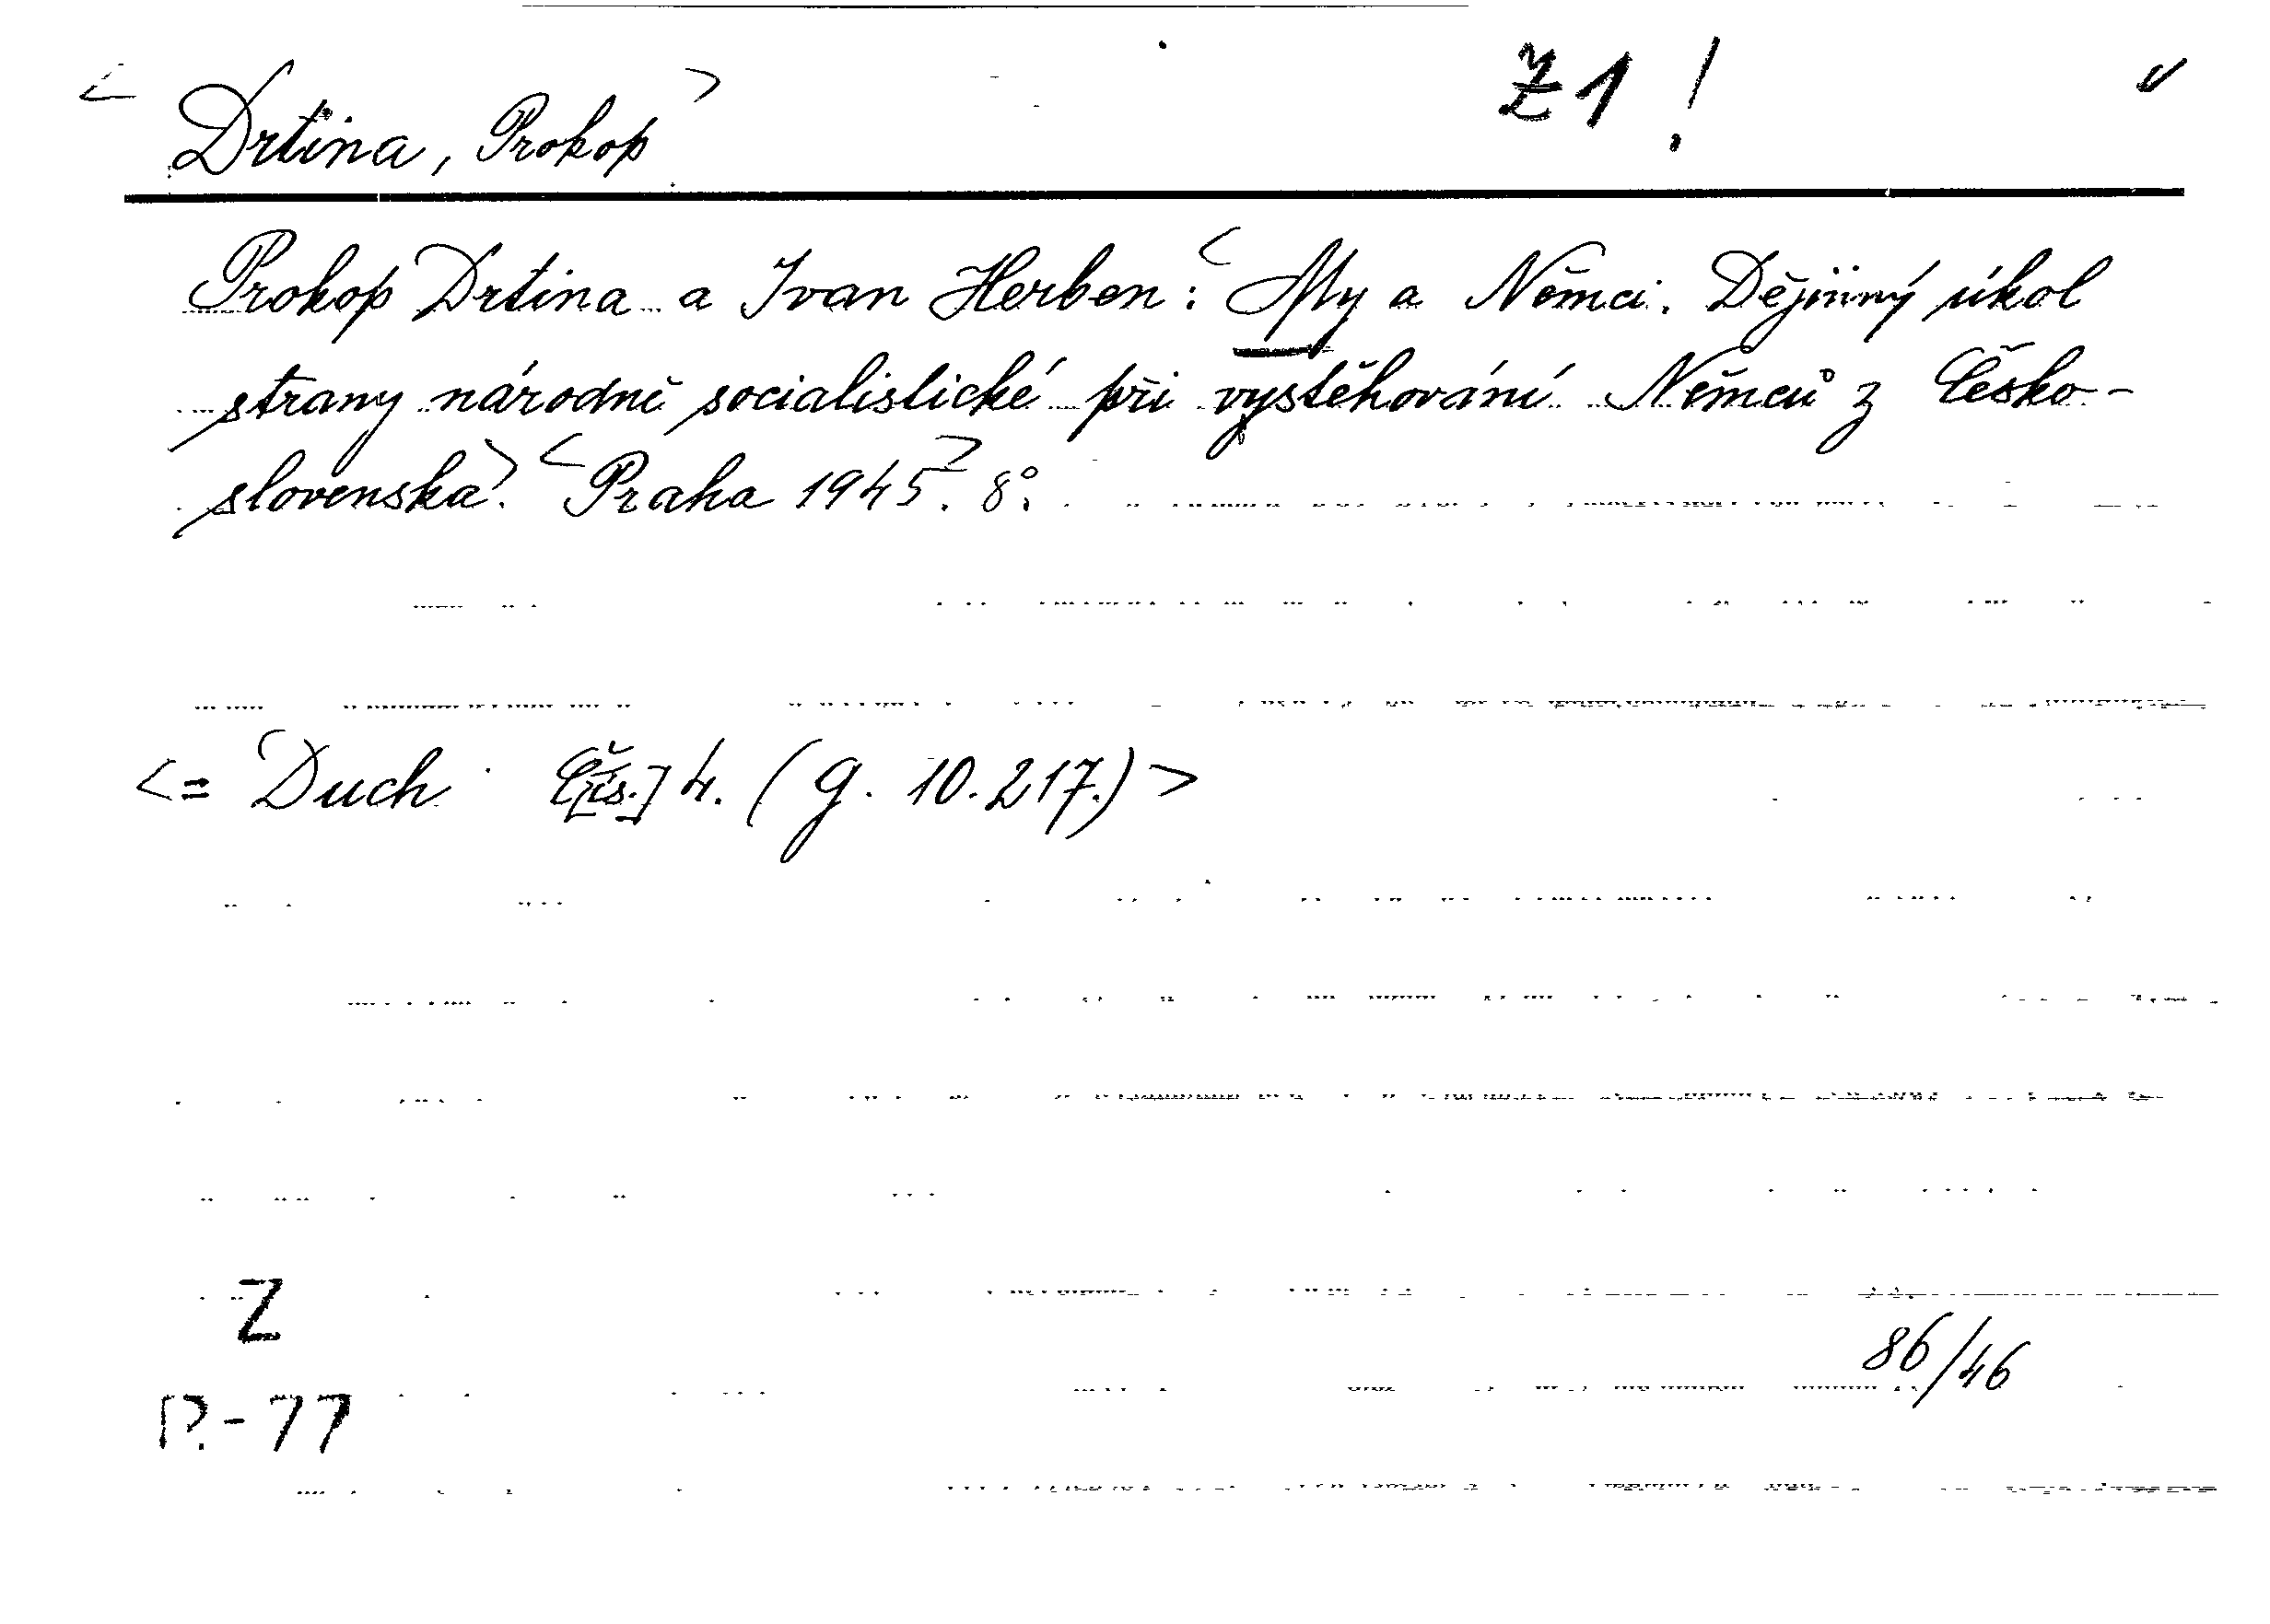 Z1!
<Drtina, Prokop>
Prokop Drtina a Ivan Herben: <My a Němci. Dějinný úkol
strany národně socialistické při vystěhování Němců z Česko-
slovenska>. <Praha 1945>. 8°.
<= Duch Č[čís.] 4. (g. 10.217.)>
Z
86/46
P.-77